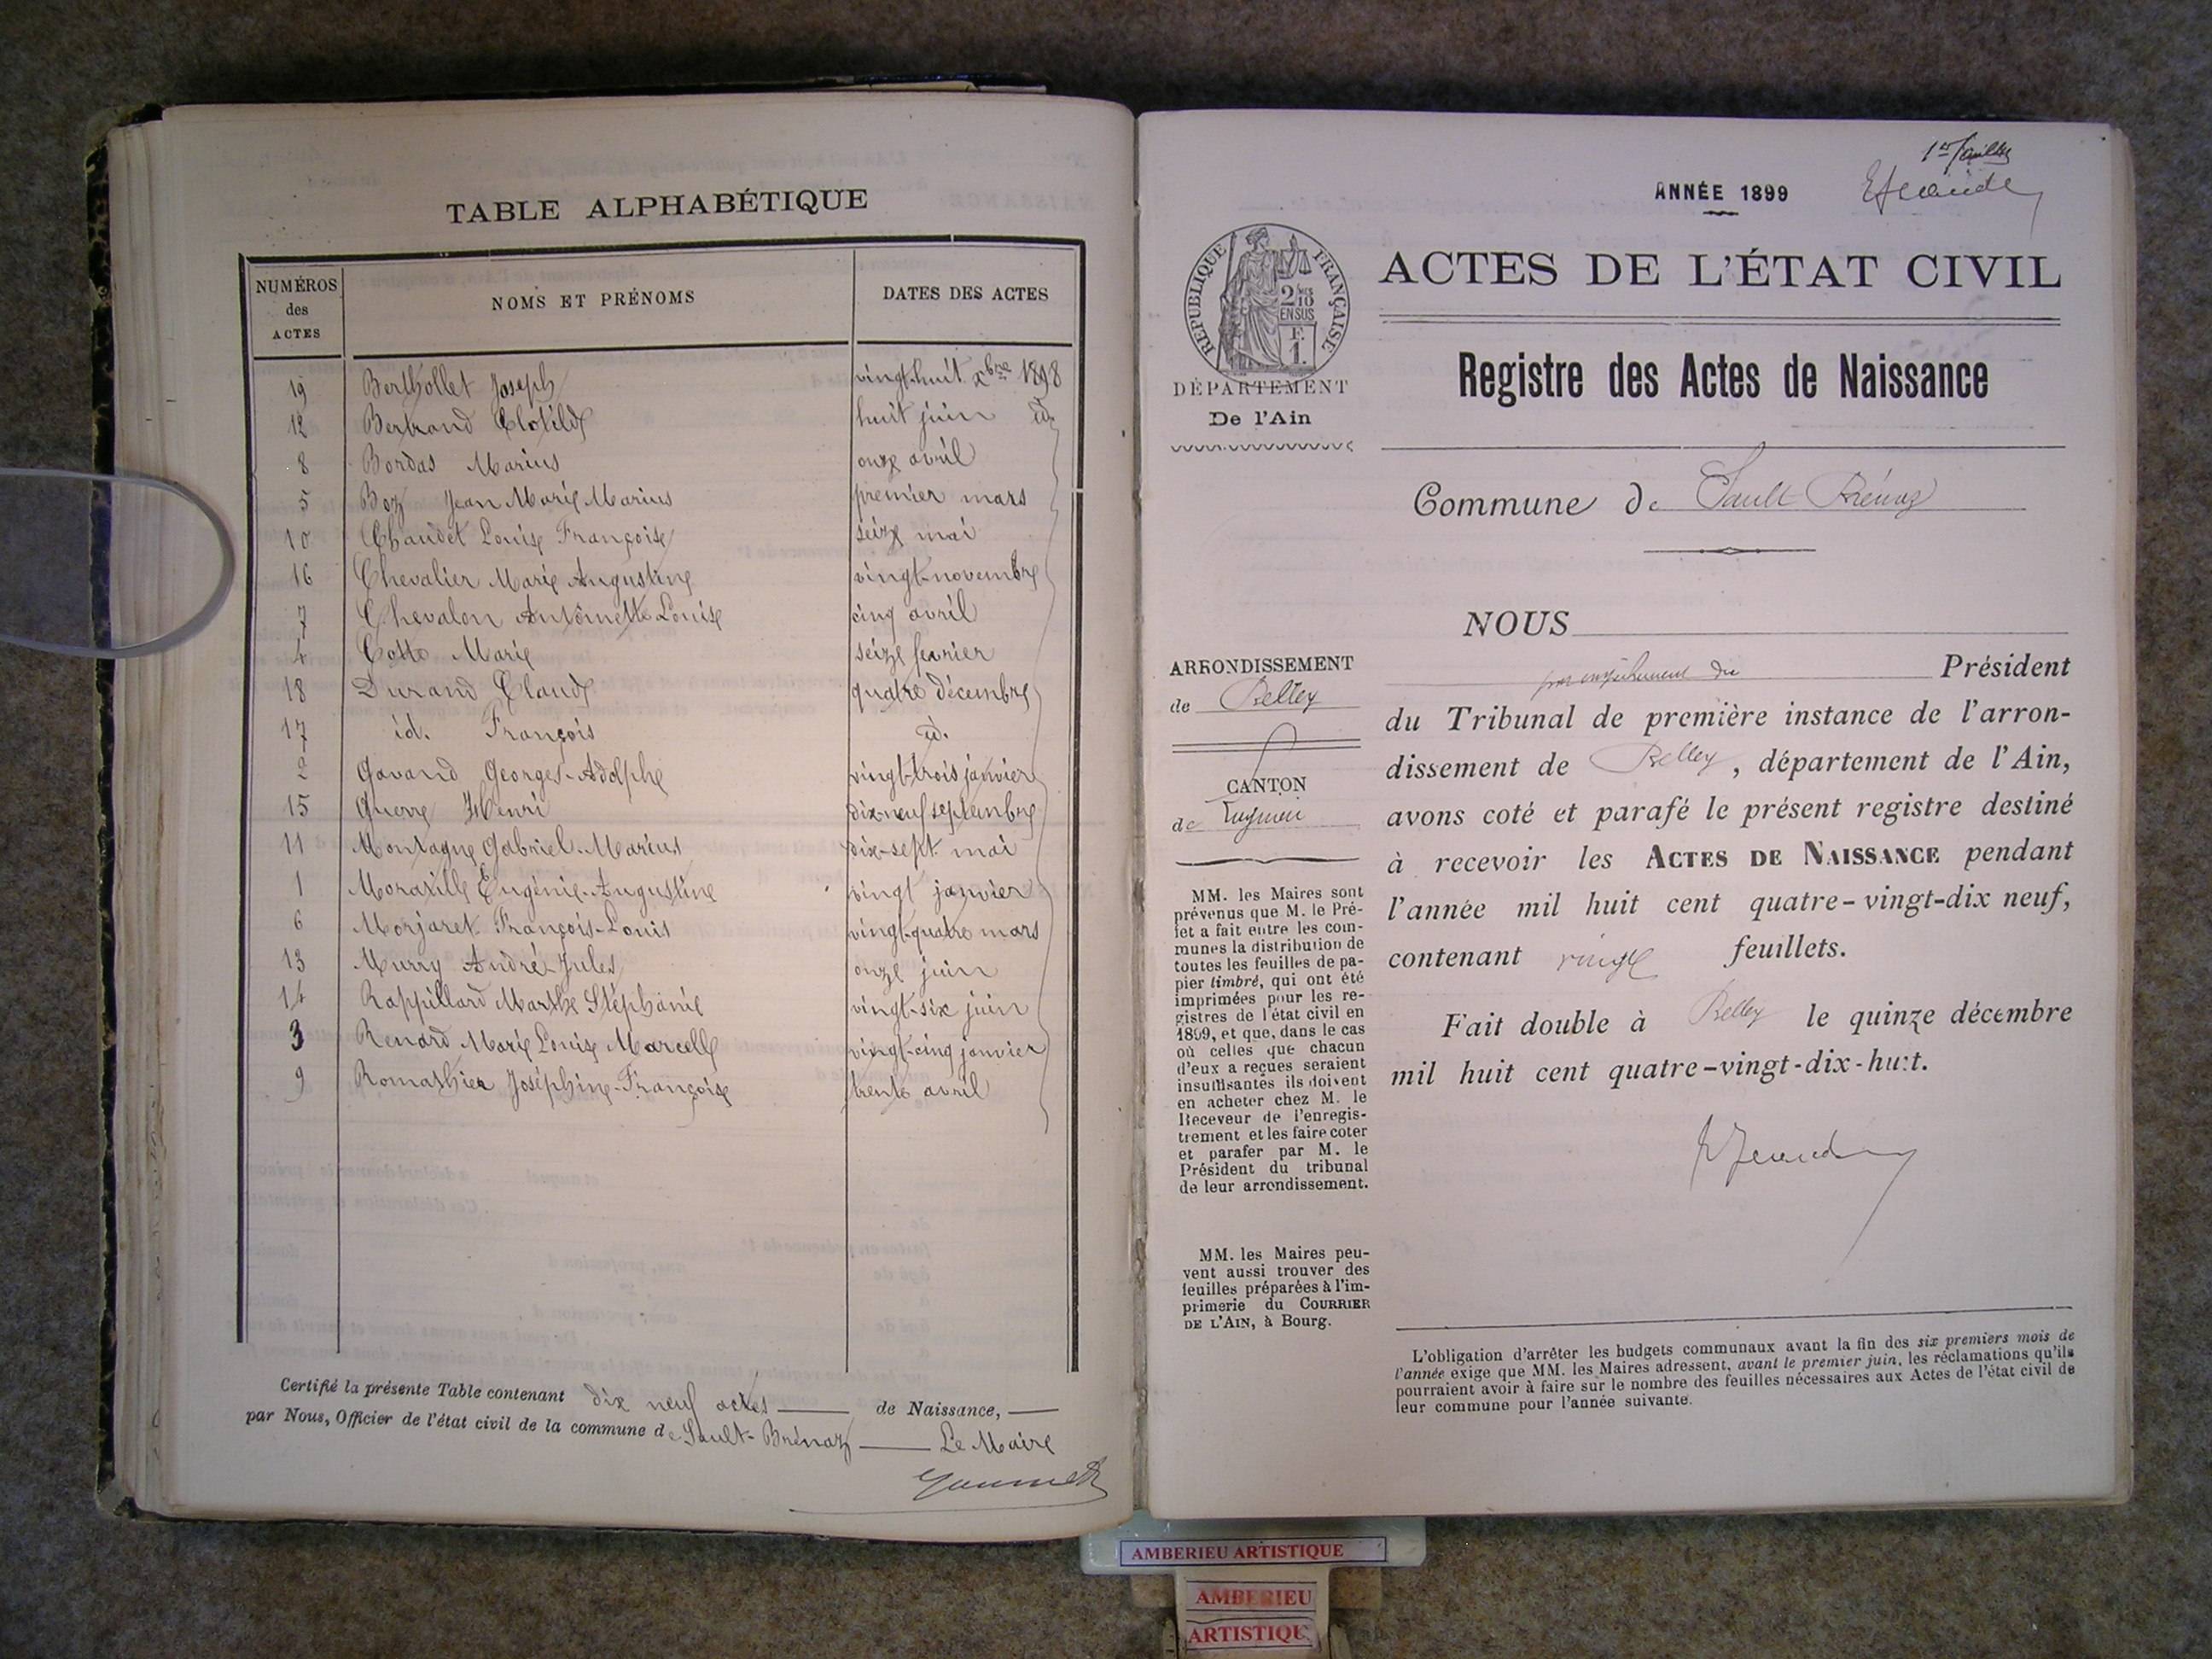 TABLE ALPHABÉTIQUE
NUMÉROS des ACTES
NOMS ET PRÉNOMS
DATES DES ACTES
19 Berthollet Joseph vingt-huit xbre 1898
12 Bertrand Clotilde huit juin id.
8 Bordas Marius onze avril
5 Boz Jean Marie Marius premier mars
10 Chaudet Louise Françoise seize mai
16 Chevalier Marie Augustine vingt-novembre
7 Chevalon Antoinette Louise cinq avril
4 Cotto Marie seize fevrier
18 Durand Claude quatre décembre
17 id. François id.
2 Gavand Georges-Adolphe vingt-trois janvier
15 Guerre Henri dix-neuf septembre
11 Montagne Gabriel-Marius dix-sept mai
1 Moraville Eugénie-Augustine vingt janvier
6 Morjaret François-Louis vingt-quatre mars
13 Murry André-Jules onze juin
14 Rappillard Marthe Stéphanie vingt-six juin
3 Renard Marie Louise Marcelle vingt-cinq janvier
9 Romathier Joséphine-Françoise trente avril
Certifié la présente Table contenant dix neuf actes de Naissance,
par Nous, Officier de l'état civil de la commune de Sault-Brénaz Le Maire
1er feuillet
ANNÉE 1899
RÉPUBLIQUE FRANÇAISE
2/10 EN SUS
F. 1.
ACTES DE L'ÉTAT CIVIL
DÉPARTEMENT
De l'Ain
Registre des Actes de Naissance
Commune de Sault Brénaz
ARRONDISSEMENT
de Belley
CANTON
de Lagnieu
MM. les Maires sont
prévenus que M. le Pré-
fet a fait entre les com-
munes la distribution de
toutes les feuilles de pa-
pier timbré, qui ont été
imprimées pour les re-
gistres de l'état civil en
1899, et que, dans le cas
où celles que chacun
d'eux a reçues seraient
insuffisantes ils doivent
en acheter chez M. le
Receveur de l'enregis-
trement et les faire coter
et parafer par M. le
Président du tribunal
de leur arrondissement.
MM. les Maires peu-
vent aussi trouver des
feuilles préparées à l'im-
primerie du COURRIER
DE L'AIN, à Bourg.
NOUS
par empêchement du Président
du Tribunal de première instance de l'arron-
dissement de Belley, département de l'Ain,
avons coté et parafé le présent registre destiné
à recevoir les ACTES DE NAISSANCE pendant
l'année mil huit cent quatre-vingt-dix neuf,
contenant vingt feuillets.
Fait double à Belley le quinze décembre
mil huit cent quatre-vingt-dix-huit.
L'obligation d'arrêter les budgets communaux avant la fin des six premiers mois de
l'année exige que MM. les Maires adressent, avant le premier juin, les réclamations qu'ils
pourraient avoir à faire sur le nombre des feuilles nécessaires aux Actes de l'état civil de
leur commune pour l'année suivante.
AMBERIEU ARTISTIQUE
AMBERIEU
ARTISTIQUE